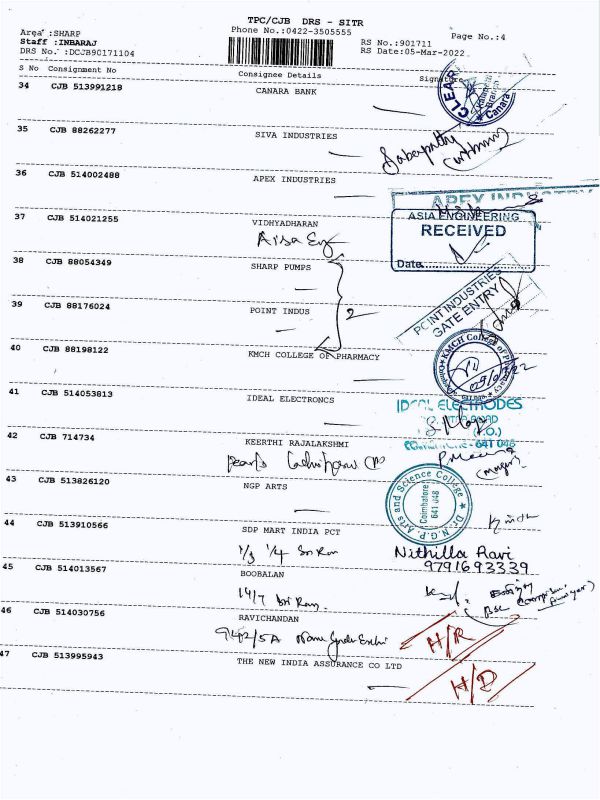 TPC/CJB DRS - SITR
Area :SHARP
Phone No.:0422-3505555
Page No.:4
Staff :INBARAJ
RS No.:901711
DRS No. :DCJB90171104
RS Date:05-Mar-2022
S No Consignment No Consignee Details Signature
34 CJB 513991218 CANARA BANK
CLEAR
Canara
35 CJB 88262277 SIVA INDUSTRIES
36 CJB 514002488 APEX INDUSTRIES
APEX INDUSTRIES
37 CJB 514021255 VIDHYADHARAN
ASIA ENGINEERING
RECEIVED
Date
38 CJB 88054349 SHARP PUMPS
2
39 CJB 88176024 POINT INDUS
POINT INDUSTRIES
GATE ENTRY
40 CJB 88198122 KMCH COLLEGE OF PHARMACY
KMCH College of Pharmacy
41 CJB 514053813 IDEAL ELECTRONCS
IDEAL ELECTRODES
641 048
42 CJB 714734 KEERTHI RAJALAKSHMI
43 CJB 513826120 NGP ARTS
Dr. N.G.P. Arts and Science College
Coimbatore
641 048
44 CJB 513910566 SDP MART INDIA PCT
Nithilla Ravi
9791693339
45 CJB 514013567 BOOBALAN
46 CJB 514030756 RAVICHANDAN
942/5A
H/R
47 CJB 513995943 THE NEW INDIA ASSURANCE CO LTD
H/D